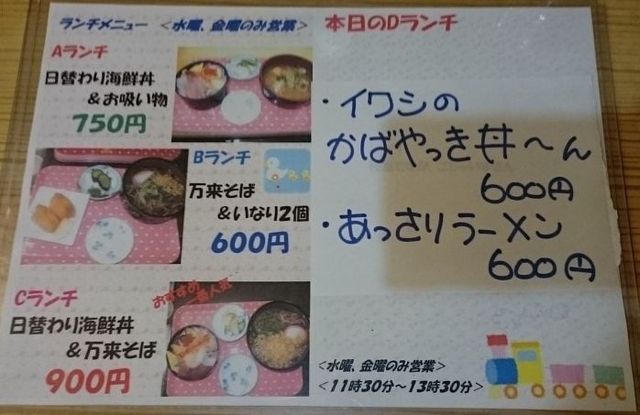 ランチメニュー <水曜、金曜のみ営業>
Aランチ
日替わり海鮮丼
&お吸い物
750円
Bランチ
万来そば
&いなり2個
600円
Cランチ
おすすめ
一番人気
日替わり海鮮丼
&万来そば
900円
本日のDランチ
・イワシの
かばやっき丼～ん
600円
・あっさりラーメン
600円
<水曜、金曜のみ営業>
<11時30分～13時30分>